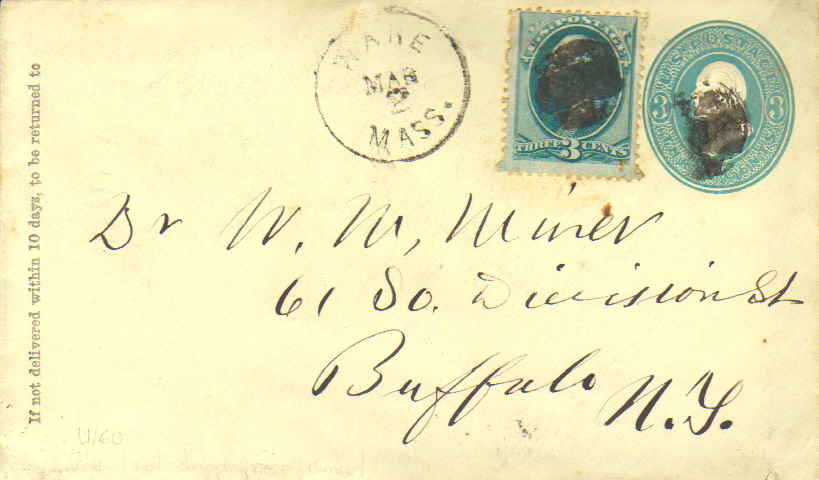 If not delivered within 10 days, to be returned to
WARE
MAR
2
MASS.
U.S. POSTAGE
THREE 3 CENTS
U.S. POSTAGE
3 3
Dr W. M. Miner
61 So. Division St
Buffalo
N.Y.
U160